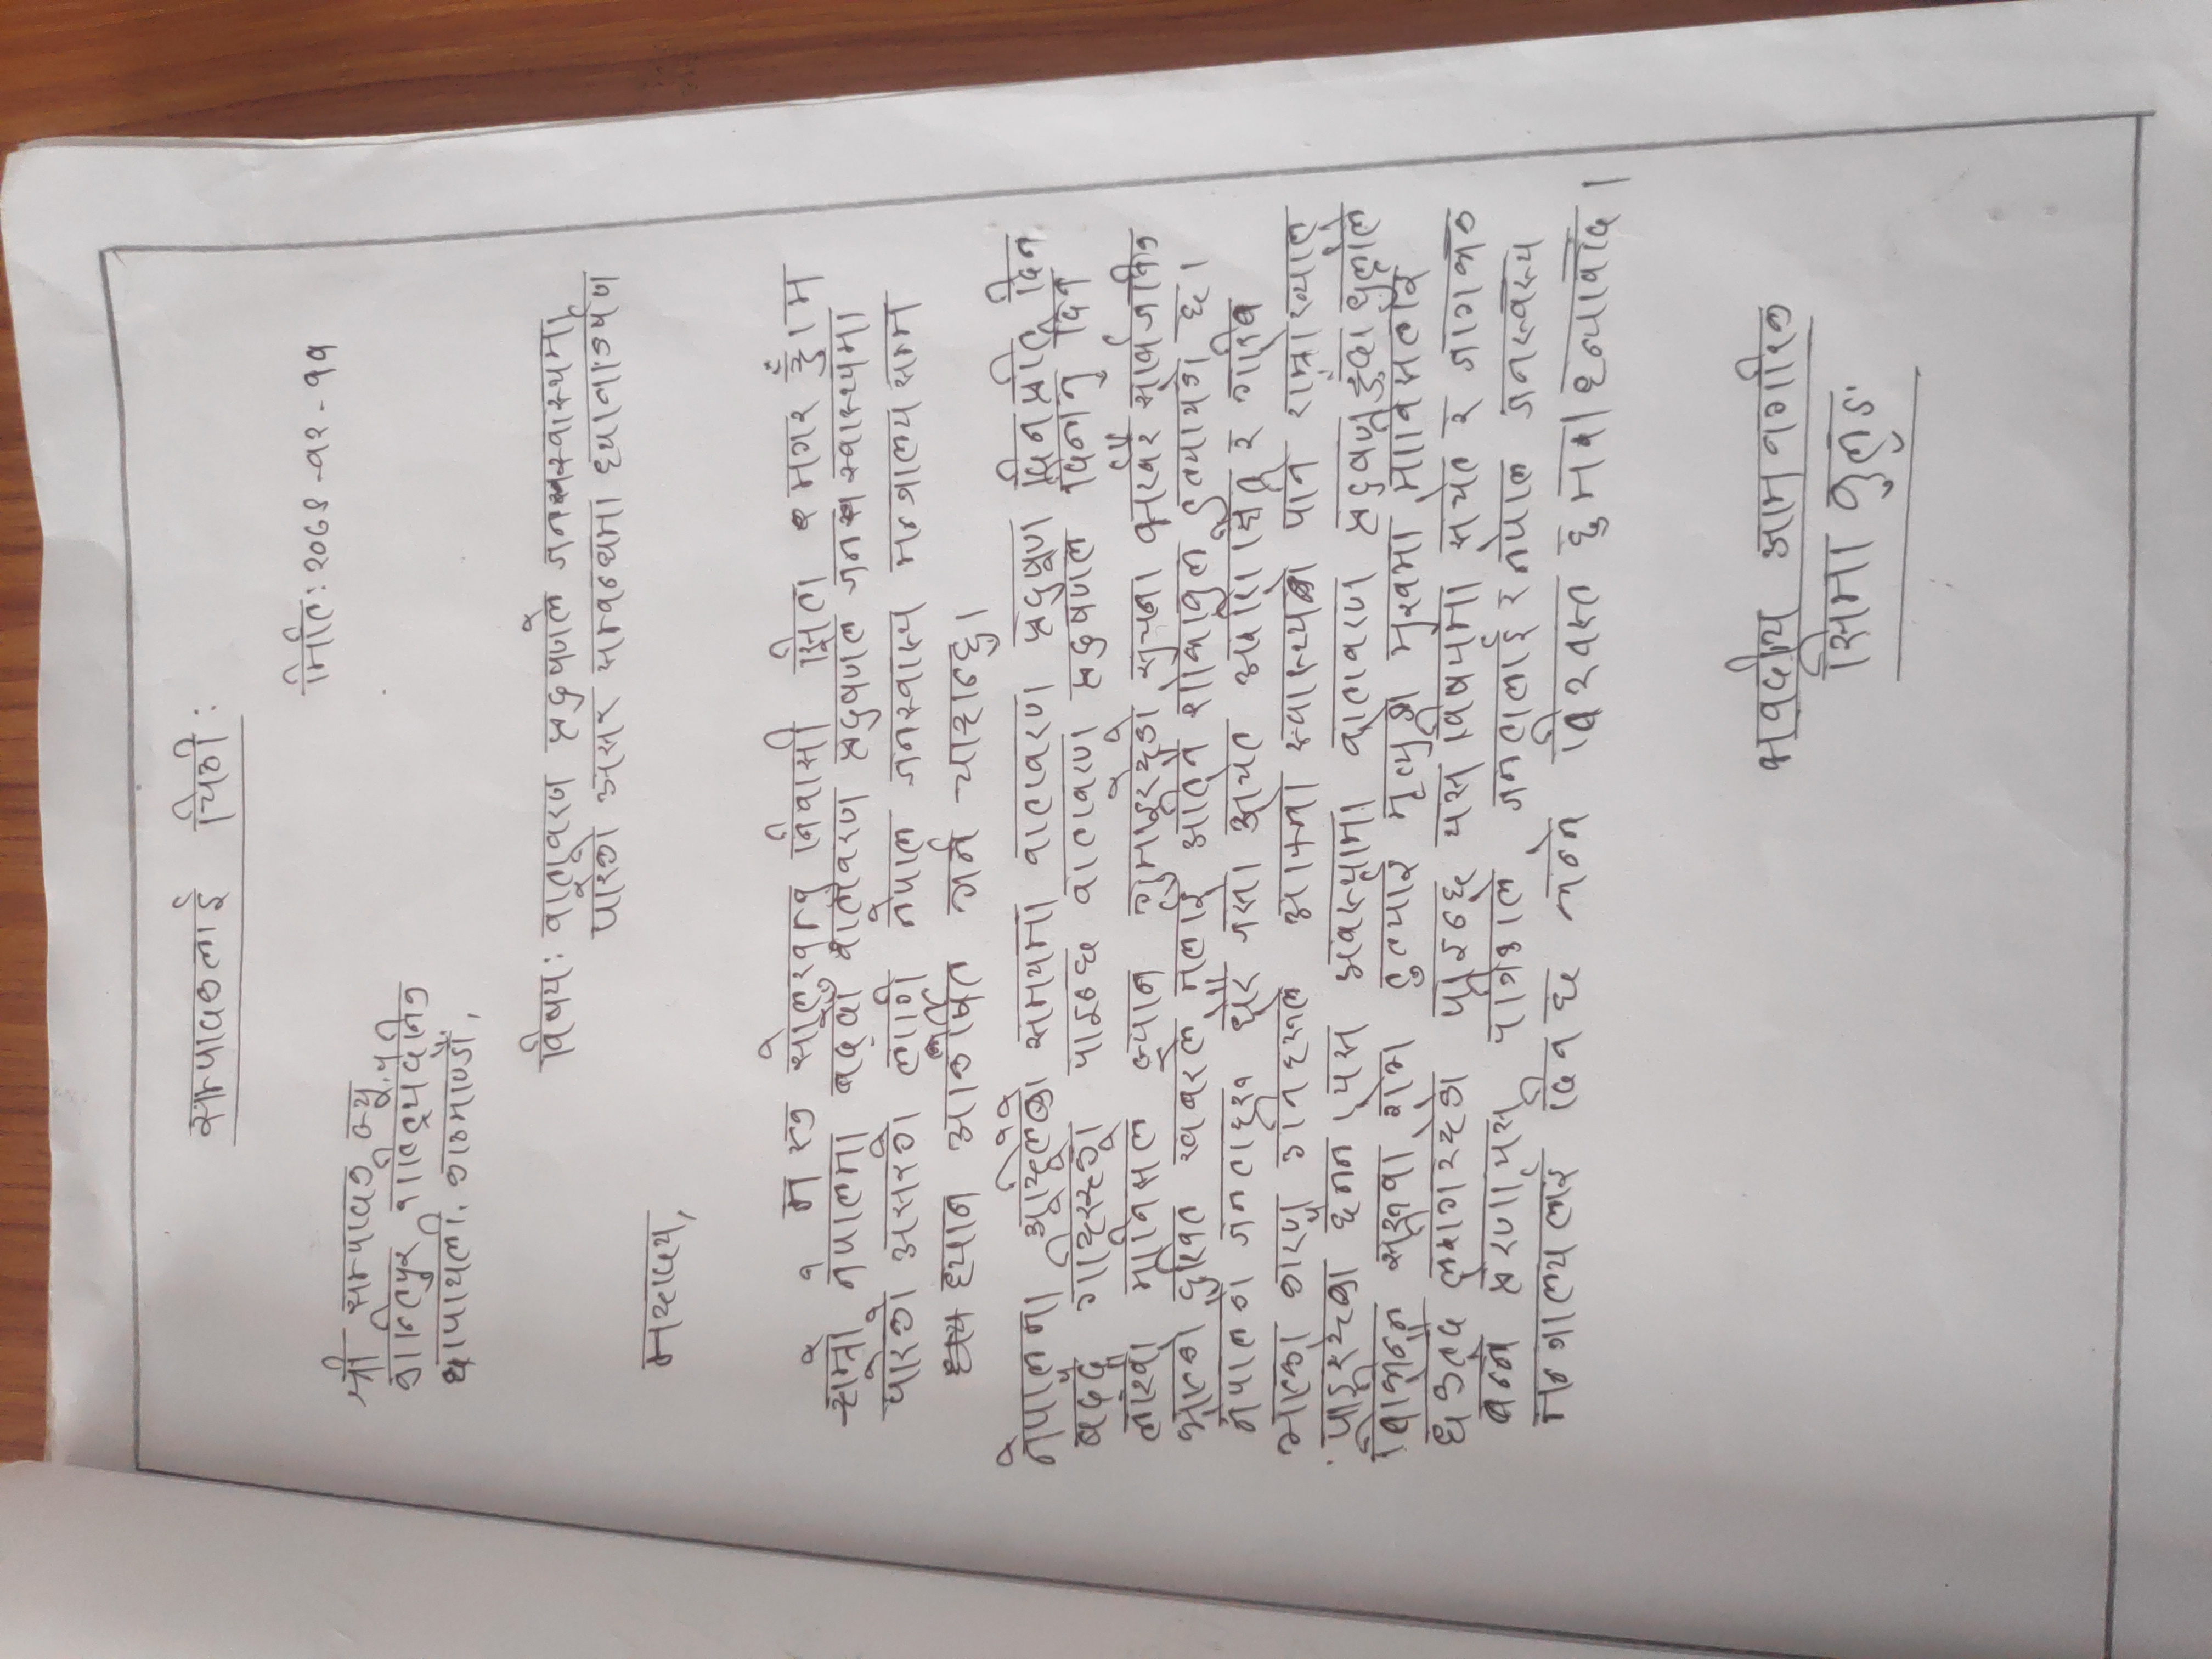 सम्पादकलाई चिठी:
मिति: २०७९-१२-११
श्री सम्पादक ज्यू,
कान्तिपुर राष्ट्रिय दैनिक
थापाथली, काठमाण्डौं,
विषय: वातावरण प्रदुषणले जनस्वास्थ्यमा
पारेको असर सम्वन्धमा ध्यानाकर्षण
महोदय,
म एक सोलुखुम्बु निवासी मगर हुँ। म
हाम्रो नेपालमा बढ्दो वातावरण प्रदुषणले जनस्वास्थ्यमा
पारेको असरको लागि नेपाल जनस्वास्थ्य मन्त्रालय सम्म
ध्यान आकर्षित गर्न चाहान्छु।
नेपालमा अहिलेको समयमा वातावरण प्रदुषण दिन प्रति दिन
बढ्दै गहिरहेको पाइन्छ वातावरण प्रदुषणले दिनानु दिन
लाखौ मानिसले ज्यान गुमाइरहेको सुचना भर्खरै सार्वजानिक
भएको दुखित खबरले मलाई अतिनै शोकाकुल तुल्यायको छ।
नेपालको जनताहरु धेरै जसो अचेत अशिक्षित र गरिब
भएका कारण उनिहरुले आफ्नो स्वास्थ्यको पनि राम्रो ख्याल
पाइरहेका छैनन। यस अवस्थामा वातावरण प्रदुषण हुँदा धुलोले
बिभिन्न सरुवा रोग तुल्याई मृत्युको मुखमा मानिसलाई
धकेल्दै लगिरहेको पाइन्छ यस विषयमा सचेत र जागरुक
बन्ने प्रेरणा यस पत्रिकाले जनतालाई र नेपाल जनस्वस्थ्य
मन्त्रालयलाई दिन छ भन्ने बिश्वस्त छु म। धन्यावाद।
भवदीय आमनगरिक
सिमा कुलुङ